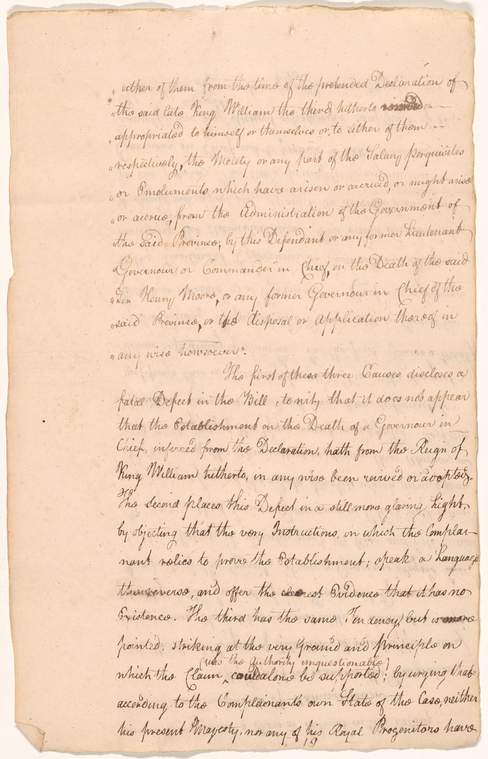 " either of them from the time of the pretended Declaration of
" the said late King William the third hitherto
" appropriated to himself or themselves or, to either of them
" respectively, the Moiety or any part of the Salary Perquisites
" or Emoluments which have arisen or accrued, or might arise
" or accrue, from the Administration of the Government of
" the said Province; by this Defendant or any former Lieutenant
" Governour or Commander in Chief, on the Death of the said
" Sir Henry Moore, or any former Governour in Chief of the
" said Province, or the disposal or Application thereof in
" any wise howsoever.
The first of these three Causes discloses a
fatal Defect in the Bill, to wit, that it does not appear
that the Establishment on the Death of a Governour in
Chief, inferred from the Declaration, hath from the Reign of
King William hitherto, in any wise been revived or adopted.
The second places this Defect in a still more glaring Light,
by objecting that the very Instructions, on which the Complai-
nant relies to prove the Establishment; speak a Language
the reverse, and offer the clearest Evidence that it has no
Existence. The third has the same Tendency, but is more
pointed: striking at the very Ground and Principle on
[was the Authority unquestionable]
which the Claim ‸ could alone be supported; by urging that
according to the Complainants own State of the Case, neither
his present Majesty, nor any of his Royal Progenitors have
19